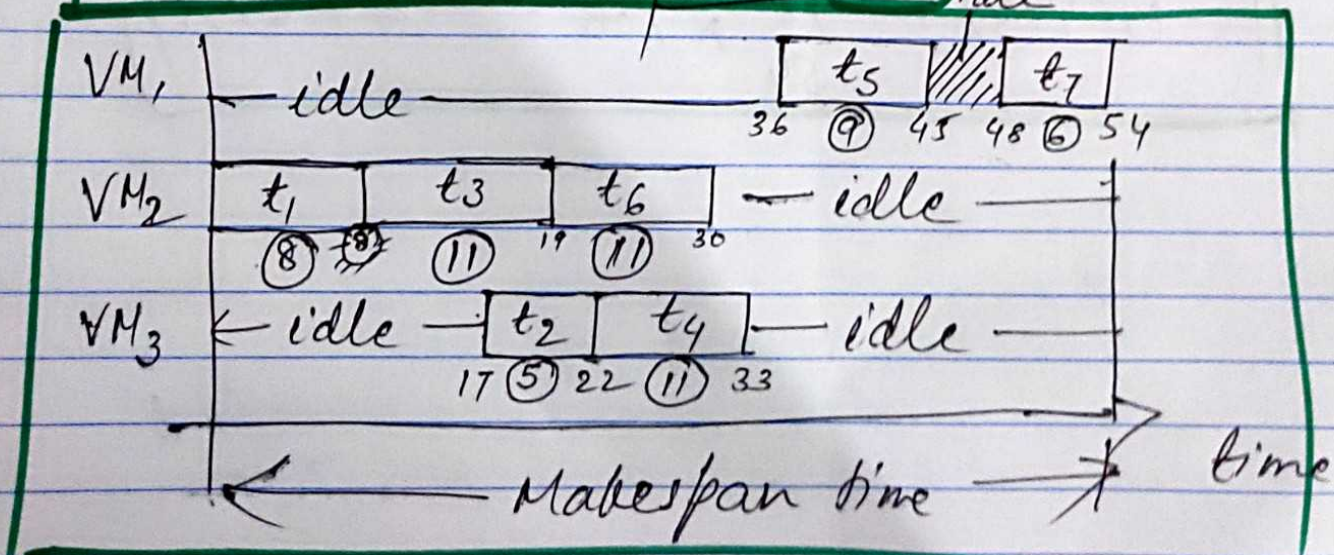 VM1 idle t5 t7
36 9 45 48 6 54
VM2 t1 t3 t6 idle
8 8 11 19 11 30
VM3 idle t2 t4 idle
17 5 22 11 33
time
Makespan time